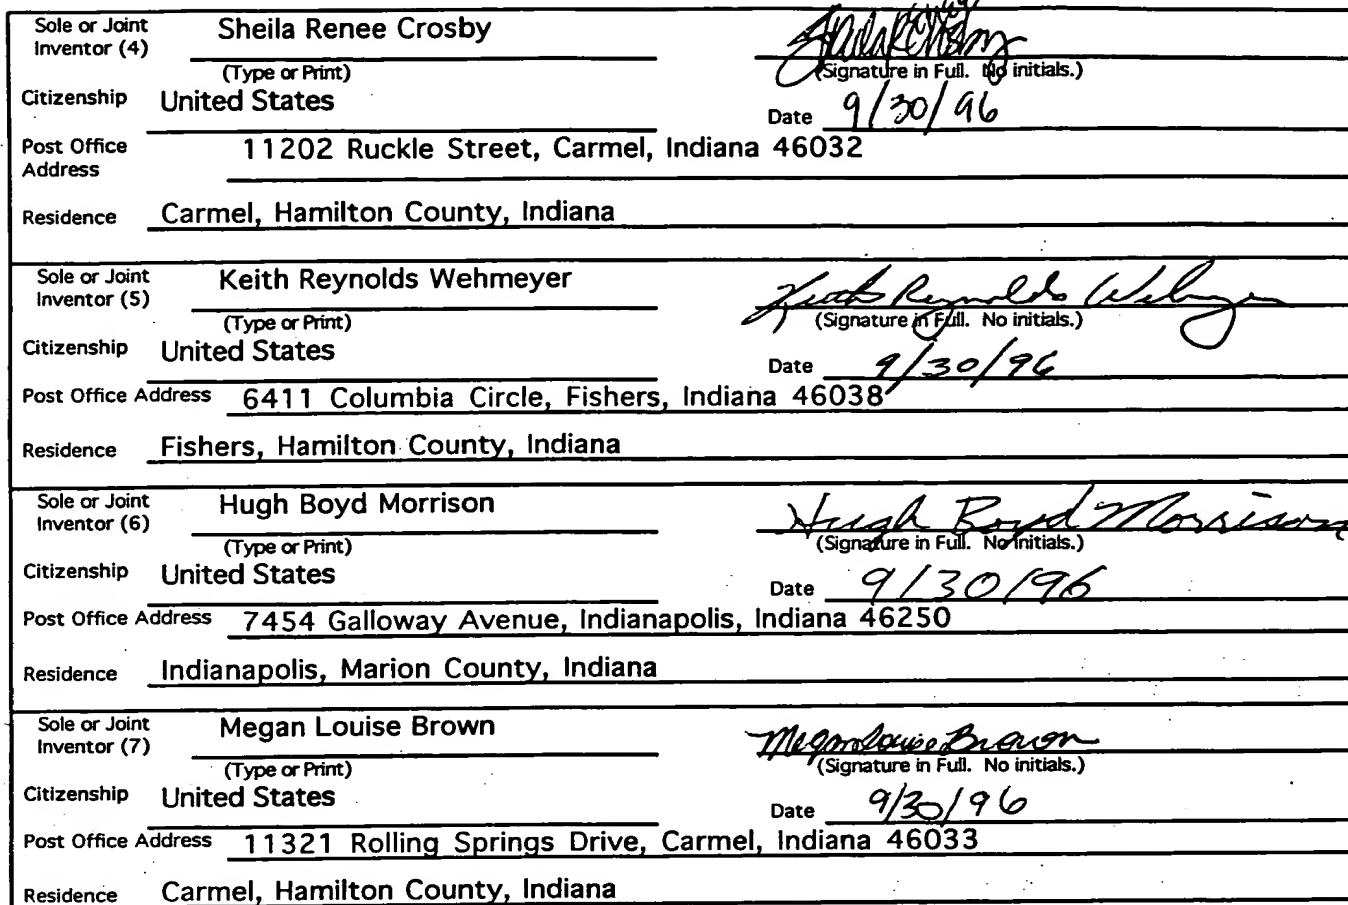 Sole or Joint Inventor (4) Sheila Renee Crosby
(Type or Print) (Signature in Full. No initials.)
Citizenship United States Date 9/30/96
Post Office Address 11202 Ruckle Street, Carmel, Indiana 46032
Residence Carmel, Hamilton County, Indiana
Sole or Joint Inventor (5) Keith Reynolds Wehmeyer Keith Reynolds Wehmeyer
(Type or Print) (Signature in Full. No initials.)
Citizenship United States Date 9/30/96
Post Office Address 6411 Columbia Circle, Fishers, Indiana 46038
Residence Fishers, Hamilton County, Indiana
Sole or Joint Inventor (6) Hugh Boyd Morrison Hugh Boyd Morrison
(Type or Print) (Signature in Full. No initials.)
Citizenship United States Date 9/30/96
Post Office Address 7454 Galloway Avenue, Indianapolis, Indiana 46250
Residence Indianapolis, Marion County, Indiana
Sole or Joint Inventor (7) Megan Louise Brown Megan Louise Brown
(Type or Print) (Signature in Full. No initials.)
Citizenship United States Date 9/30/96
Post Office Address 11321 Rolling Springs Drive, Carmel, Indiana 46033
Residence Carmel, Hamilton County, Indiana